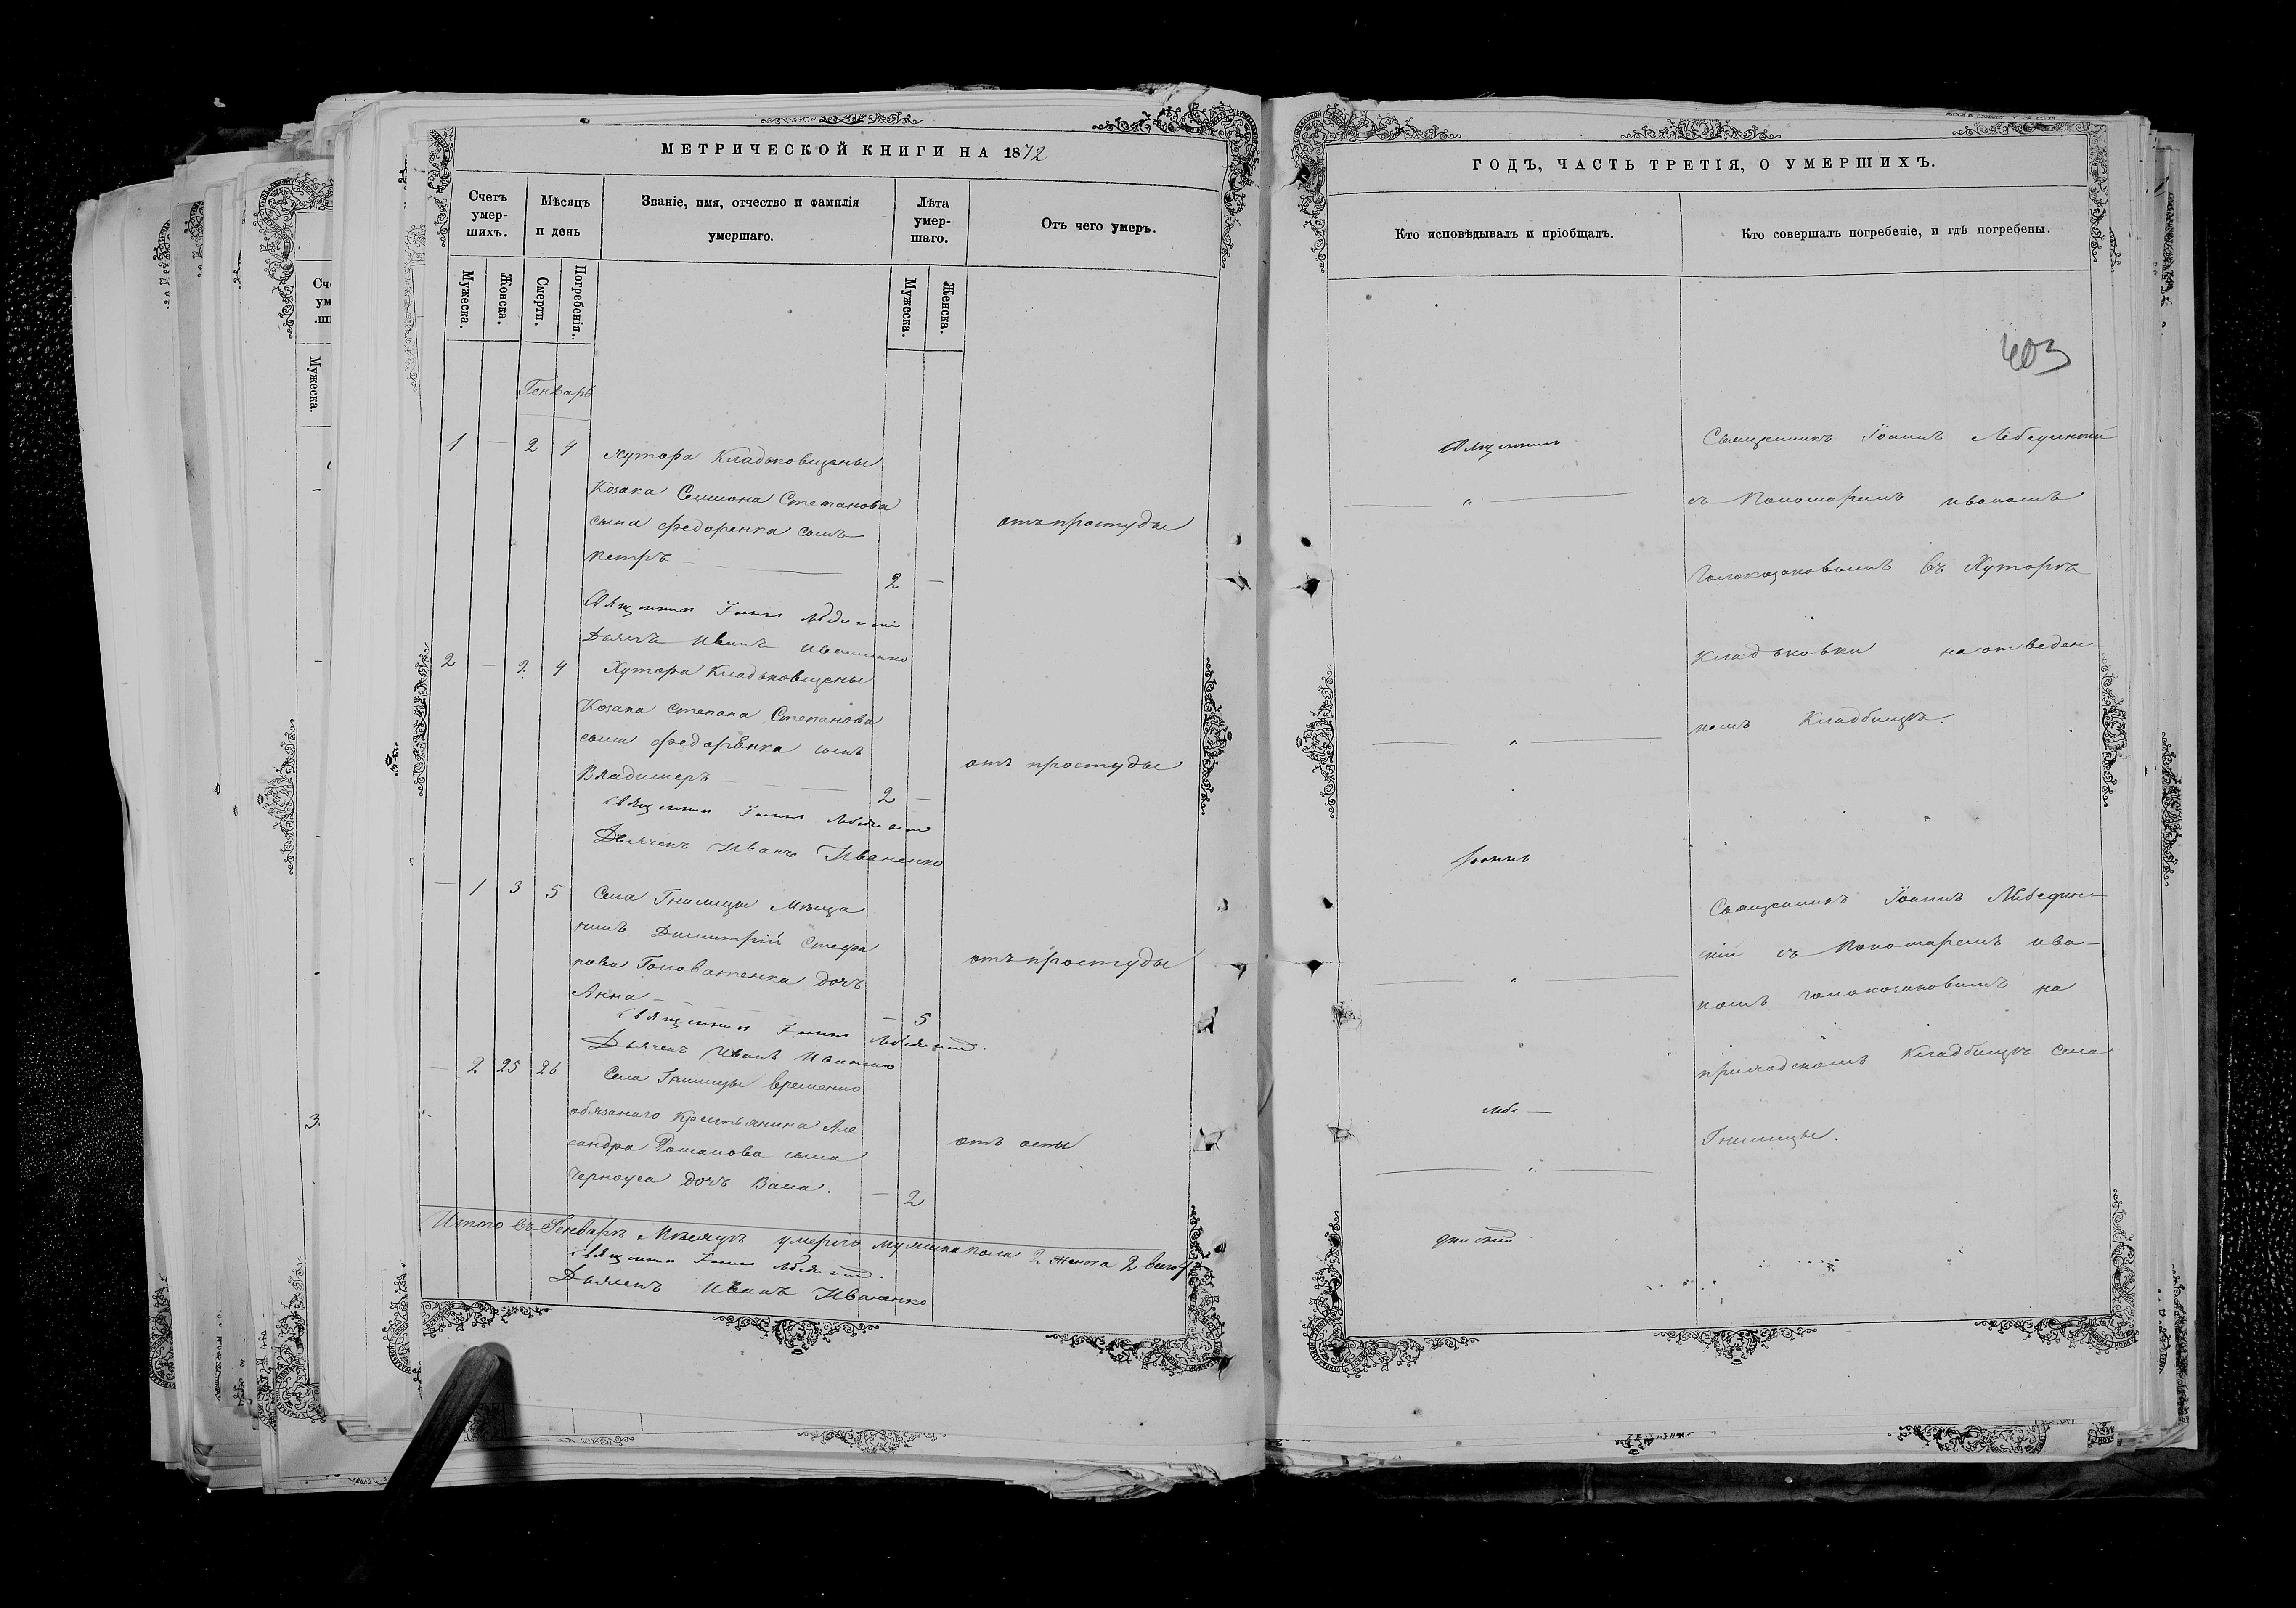 МЕТРИЧЕСКОЙ КНИГИ НА 1872
Счетъ умер-шихъ.
Мѣсяцъ и день
Званіе, имя, отчество и фамилія умершаго.
Лѣта умер-шаго.
Отъ чего умеръ.
Мужеска.
Женска.
Смерти.
Погребенія.
Мужеска.
Женска.
Генварь
1 — 2 4 Хутора Кладьковщены
Козака Симиона Степанова
сына Федоренка сынъ
Петръ — 2 —
отъ простуды
Священникъ Іоаннъ Лебединскій
Дьячекъ Иванъ Иваненко
2 — 2 4 Хутора Кладьковщены
Козака Степана Степанова
сына Федоренка сынъ
Владимеръ — 2 —
отъ простуды
Священникъ Іоаннъ Лебединскій
Дьячекъ Иванъ Иваненко
— 1 3 5 Села Гнилицы Мѣща
нинъ Димитрій Стефа
нова Головатенка дочь
Анна — — 5
отъ простуды
Священникъ Іоаннъ Лебединскій.
Дьячекъ Иванъ Иваненко
— 2 25 26 Села Гнилицы временно
обязанаго Крестьянина Але
сандра Романова сына
Черноуса дочь Васа. — 2
отъ оспы
Итого въ Генварѣ Мѣсяцѣ умерло мужеска пола 2 женска 2 всего 4
Священникъ Іоаннъ Лебединскій.
Дьячекъ Иванъ Иваненко
ГОДЪ, ЧАСТЬ ТРЕТІЯ, О УМЕРШИХЪ.
Кто исповѣдывалъ и пріобщалъ.
Кто совершалъ погребеніе, и гдѣ погребены.
403
Священникъ
Іоаннъ
Лебе—
динскій
Священникъ Іоаннъ Лебединскій
съ Пономаремъ Иваномъ
Голоказаковымъ въ Хуторѣ
Кладьковки на отведен-
номъ Кладбищѣ.
Священникъ Іоаннъ Лебедин-
скій съ Пономаремъ Ива-
номъ Голоказаковымъ на
приходскомъ Кладбищѣ села
Гнилицы.
Сче
ум
ши
Мужеска.
3.